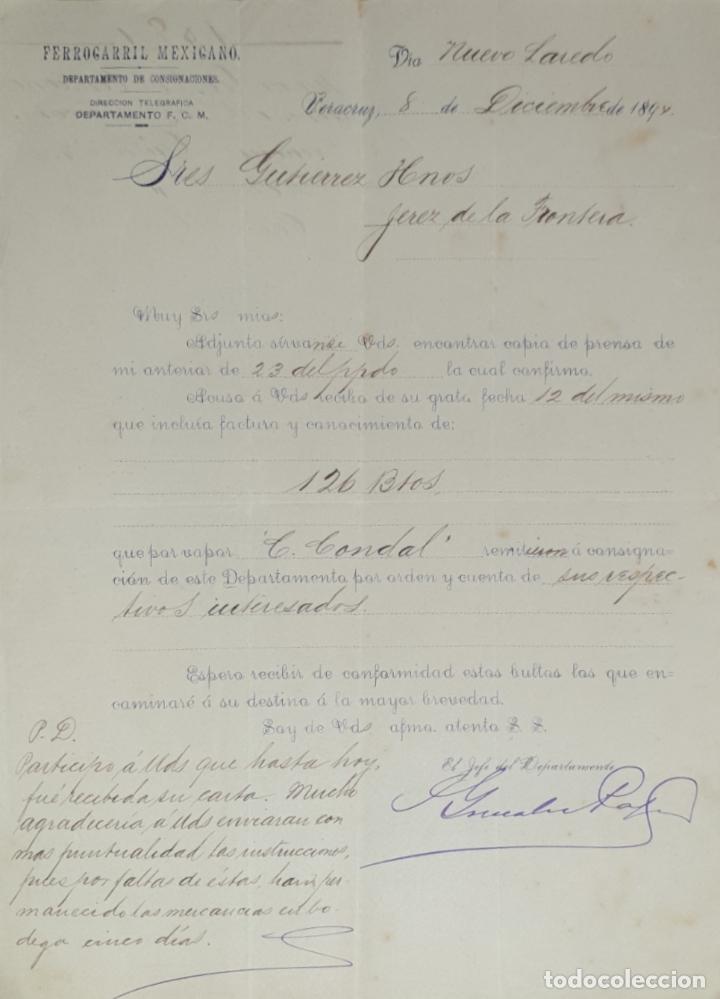 FERROCARRIL MEXICANO.
DEPARTAMENTO DE CONSIGNACIONES.
DIRECCION TELEGRAFICA
DEPARTAMENTO F. C. M.
Via Nuevo Laredo
Veracruz, 8 de Diciembre de 1894.
Sres Gutierrez Hnos
Jerez de la Frontera.
Muy Srs mios:
Adjunta sirvanse Vds. encontrar copia de prensa de
mi anterior de 23 del ppdo la cual confirmo.
Acuso á Vds recibo de su grata fecha 12 del mismo
que incluía factura y conocimiento de:
126 Btos.
que por vapor "C. Condal" remitieron á consigna=
ción de este Departamento por orden y cuenta de sus respec-
tivos interesados.
Espero recibir de conformidad estos bultos los que en=
caminaré á su destino á la mayor brevedad.
Soy de Vds afmo. atento S. S.
El Jefe del Departamento
P. D.
Participo á Uds que hasta hoy,
fué recibida su carta. Mucho
agradecería á Uds enviaran con
mas puntualidad las instrucciones,
pues por faltas de éstas, han per-
manecido las mercancias en bo-
dega cinco días.
todocoleccion.net